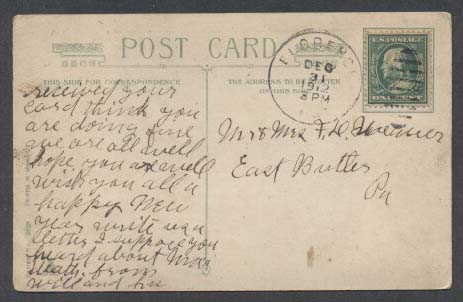 POST CARD
THIS SIDE FOR CORRESPONDENCE
THE ADDRESS TO BE
FLORENCE
DEC
31
1912
3 PM
U.S. POSTAGE
received your
card think you
are doing fine
we are all well
hope you as well
wish you all a
happy New
Year write us a
letter I suppose you
heard about Mrs
death from
will and
Mr & Mrs F. D.
East Butler
Pa